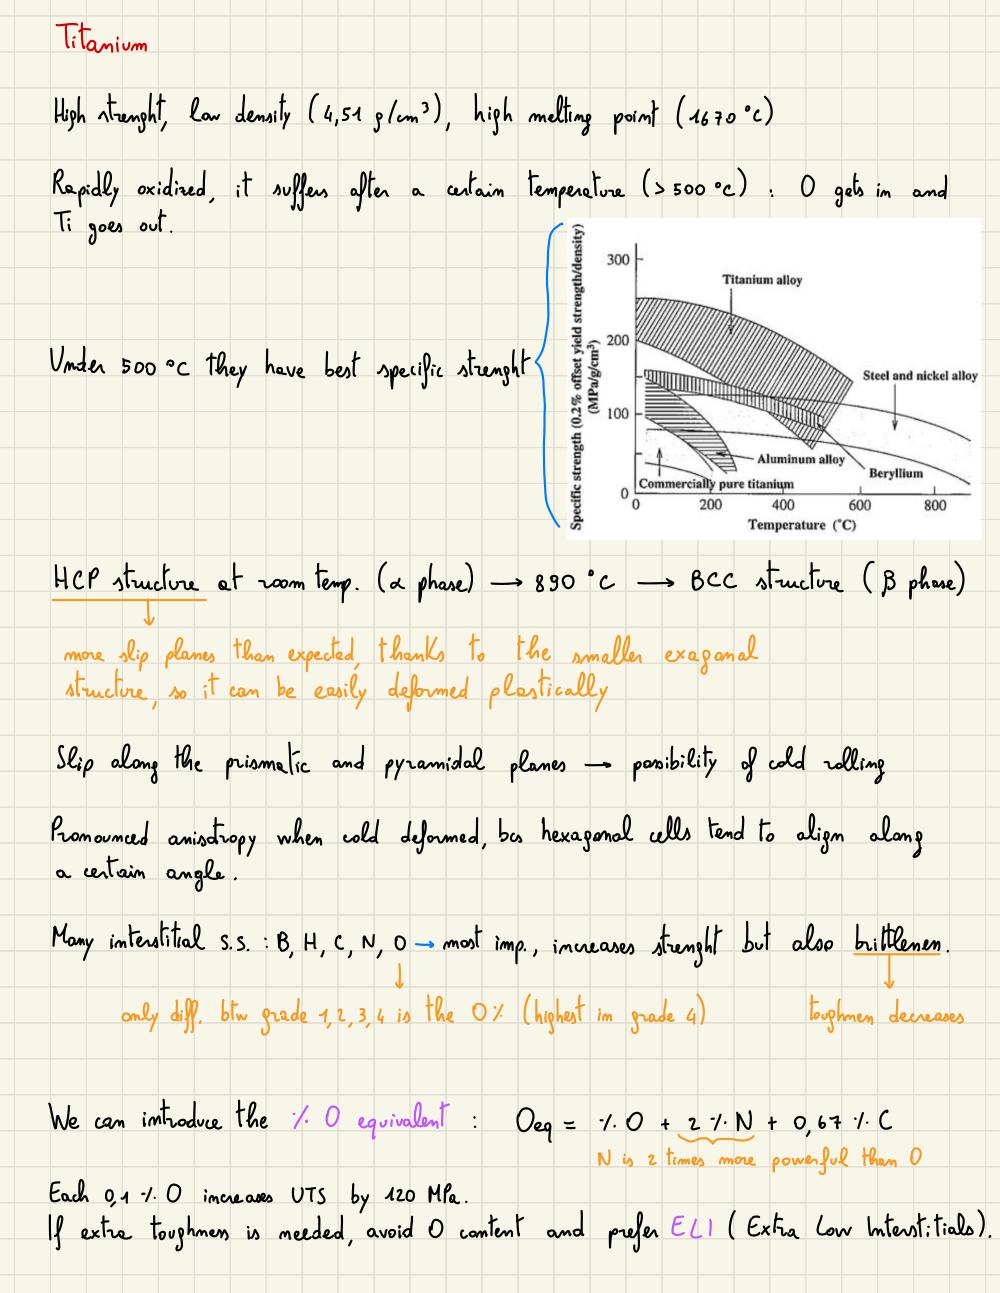 Titanium
High strenght, low density (4,51 g/cm³), high melting point (1670 °C)
Rapidly oxidized, it suffers after a certain temperature (> 500 °C) : O gets in and
Ti goes out.
Under 500 °C they have best specific strenght
Specific strength (0.2% offset yield strength/density)
(MPa/g/cm³)
300
200
100
0
Titanium alloy
Steel and nickel alloy
Aluminum alloy
Beryllium
Commercially pure titanium
0 200 400 600 800
Temperature (°C)
HCP structure at room temp. (α phase) → 890 °C → BCC structure (β phase)
more slip planes than expected, thanks to the smaller exagonal
structure, so it can be easily deformed plastically
Slip along the prismatic and pyramidal planes → possibility of cold rolling
Pronounced anisotropy when cold deformed, bcs hexagonal cells tend to align along
a certain angle.
Many interstitial s.s. : B, H, C, N, O → most imp., increases strenght but also brittleness.
only diff. btw grade 1, 2, 3, 4 is the O% (highest in grade 4)
toughness decreases
We can introduce the % O equivalent : Oeq = % O + 2 % N + 0,67 % C
N is 2 times more powerful than O
Each 0,1 % O increases UTS by 120 MPa.
If extra toughness is needed, avoid O content and prefer ELI (Extra Low Interstitials).